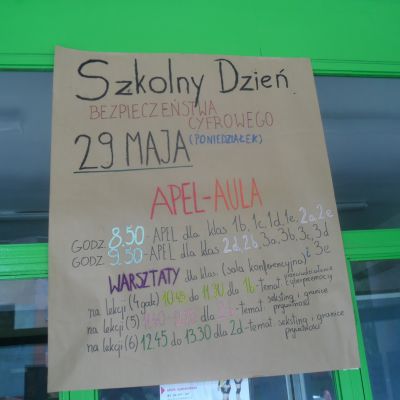 Szkolny Dzień
BEZPIECZEŃSTWA
CYFROWEGO
29 MAJA (PONIEDZIAŁEK)
APEL-AULA
GODZ 8.50-APEL dla klas 1b, 1c, 1d, 1e, 2a, 2e
GODZ 9.50-APEL dla klas 2d, 2b, 3a, 3b, 3c, 3d
3e
WARSZTATY dla klas (sala konferencyjna)
na lekcji (4 gak) 10.45 do 11.30 dla 1b-temat przeciwdziałanie cyberprzemocy
na lekcji (5) dla temat seksting i granice prywatności
na lekcji (6) 12.45 do 13.30 dla 2d-temat seksting i granice prywatności